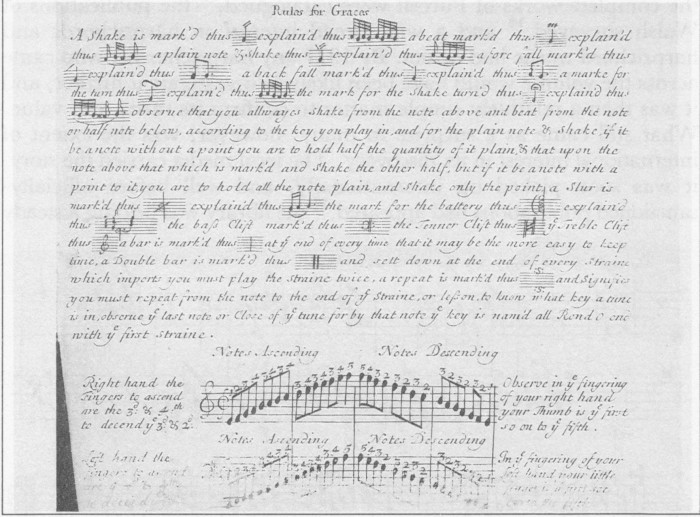 Rules for Graces
A Shake is mark'd thus explain'd thus a beat mark'd thus explain'd
thus a plain note & Shake thus explain'd thus a fore fall mark'd thus
explain'd thus a back fall mark'd thus explain'd thus a marke for
the turn thus explain'd thus the mark for the Shake turn'd thus explaind thus
observe that you allwayes Shake from the note above and beat from the note
or half note below, according to the key you play in, and for the plain note & Shake, if it
be a note without a point you are to hold half the quantity of it plain, & that upon the
note above that which is mark'd and Shake the other half, but if it be a note with a
point to it, you are to hold all the note plain, and Shake only the point, a Slur is
mark'd thus explain'd thus the mark for the battery thus explain'd
thus the bass Clift mark'd thus the Tennor Clift thus yͤ Treble Clift
thus a bar is mark'd thus at yͤ end of every time that it may be the more easy to keep
time, a Double bar is mark'd thus and sett down at the end of every Straine
which imports you must play the Straine twice, a repeat is mark'd thus and Signifies
you must repeat from the note to the end of yͤ Straine, or lesson, to know what key a tune
is in, observe yͤ last note or Close of yͤ tune for by that note yͤ key is nam'd all Rondo end
with yͤ first straine.
Notes Ascending Notes Descending
Right hand the
Fingers to ascend
are the 3ᵈ. & 4ᵗʰ
to decend yͤ 3ᵈ. & 2ᵈ.
3 4 3 4 3 4 3 4 3 4 3 4 5 4 3 2 3 2 3 2 3 2 3 2 3 2
Observe in yͤ fingering
of your right hand
your Thumb is yͤ first
so on to yͤ fifth.
Notes Ascending Notes Descending
Left hand the
fingers to ascend
are
to decend
In yͤ fingering of your
left hand your little
finger is first
to yͤ fifth